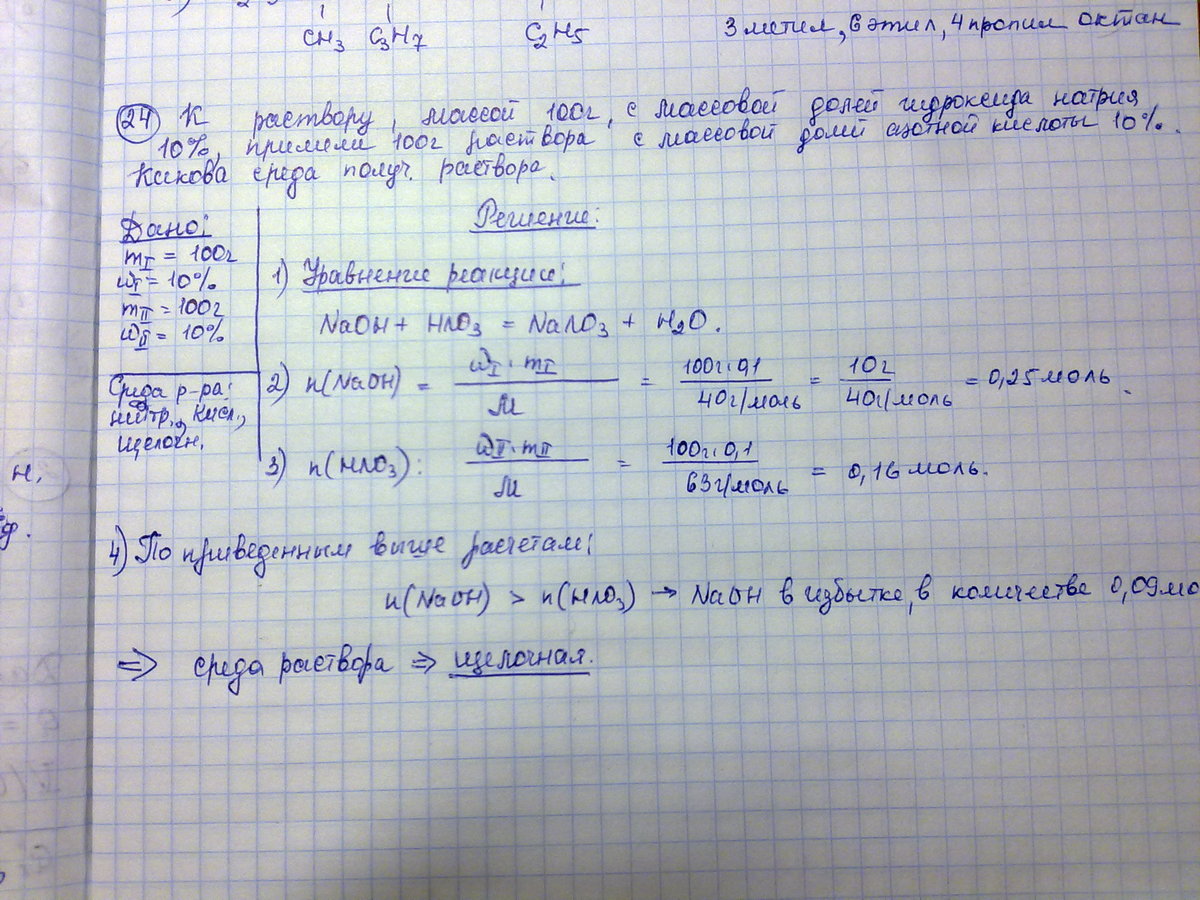 CH3 C3H7 C2H5
3 метил, 6 этил, 4 пропил октан
24 К раствору, массой 100г, с массовой долей гидроксида натрия
10%, прилили 100г раствора с массовой долей азотной кислоты 10%.
Какова среда получ. раствора.
Дано:
mI = 100г
ωI = 10%
mII = 100г
ωII = 10%
Среда р-ра:
нейтр., кисл.,
щелочн.
Решение:
1) Уравнение реакции:
NaOH + HNO3 = NaNO3 + H2O.
2) n(NaOH) = ωI · mI / M = 100г · 0,1 / 40г/моль = 10г / 40г/моль = 0,25 моль.
3) n(HNO3): ωII · mII / M = 100г · 0,1 / 63г/моль = 0,16 моль.
н.
4) По приведенным выше расчетам:
n(NaOH) > n(HNO3) → NaOH в избытке, в количестве 0,09 мо
⇒ среда раствора ⇒ щелочная.